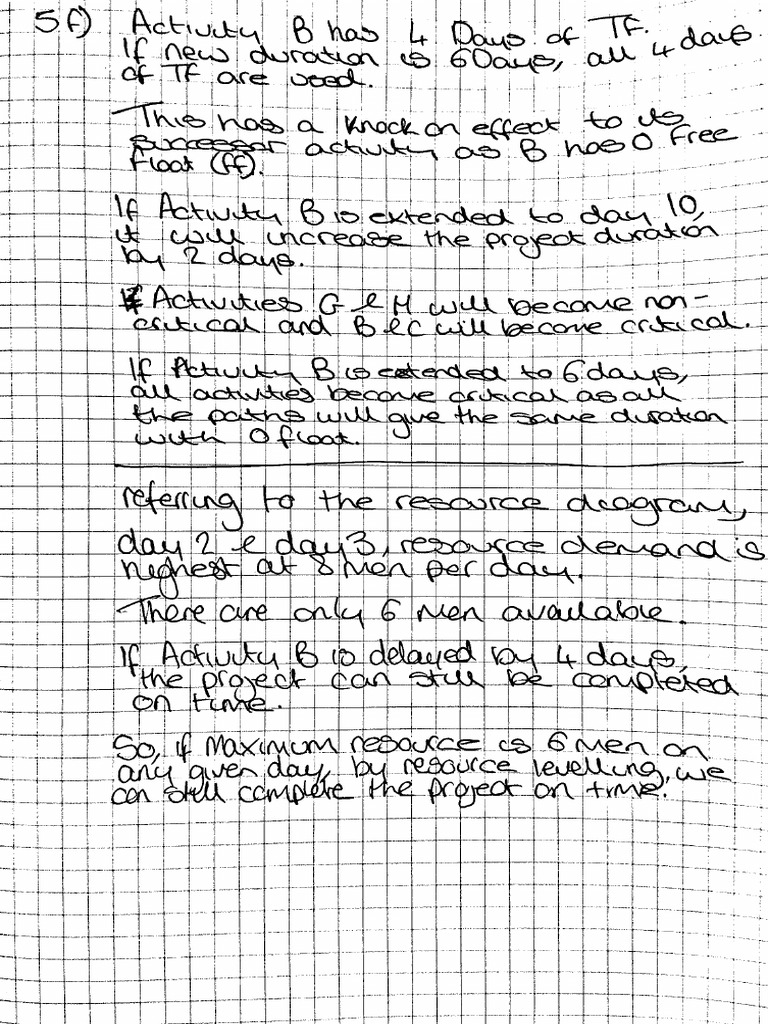 5f) Activity B has 4 Days of TF.
If new duration is 6 Days, all 4 days
of TF are used.
This has a knock on effect to its
successor activity as B has 0 free
float (ff).
If Activity B is extended to day 10,
it will increase the project duration
by 2 days.
Activities G & H will become non-
critical and B & C will become critical.
If Activity B is extended to 6 days,
all activities become critical as all
the paths will give the same duration
with 0 float.
referring to the resource diagram,
day 2 & day 3, resource demand is
highest at 8 men per day.
There are only 6 men available.
If Activity B is delayed by 4 days,
the project can still be completed
on time.
So, if maximum resource is 6 men on
any given day, by resource levelling, we
can still complete the project on time.